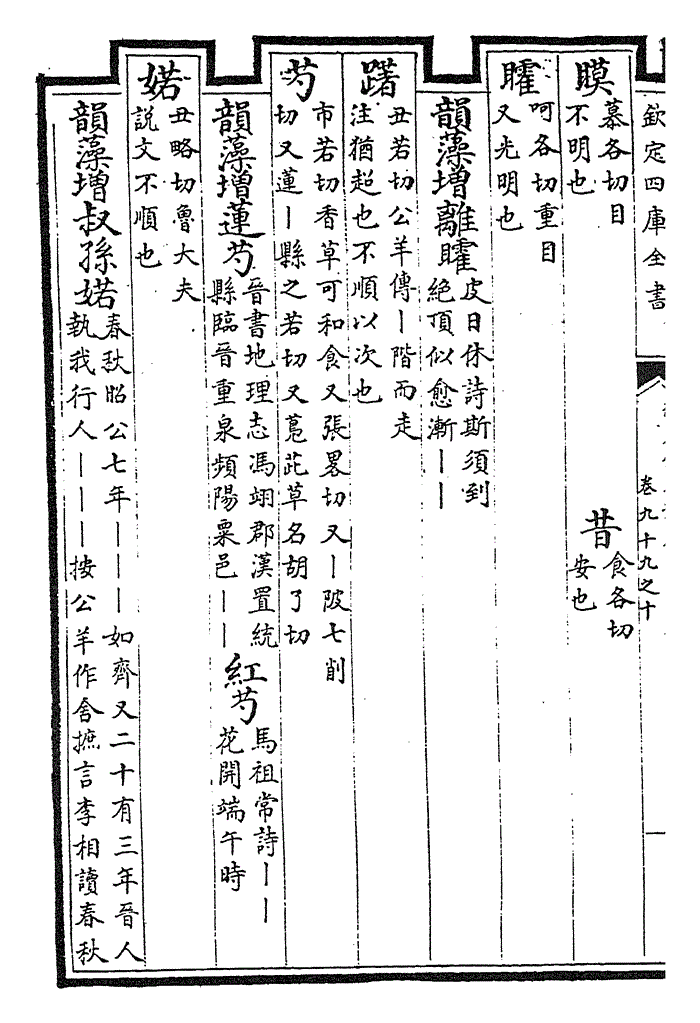 欽定四庫全書
卷九十九之十
瞙慕各切目不明也
昔食各切安也
矐呵各切重目又光明也
韻藻增離矐皮日休詩斯須到絕頂似愈漸丨丨
躇丑若切公羊傳丨階而走注猶超也不順以次也
芍市若切香草可和食又張畧切又丨陂七削切又蓮丨縣之若切又蔰茈草名胡了切
韻藻增蓮芍晉書地理志馮翊郡漢置統縣臨晉重泉頻陽粟邑丨丨
紅芍馬祖常詩丨丨花開端午時
婼丑略切魯大夫說文不順也
韻藻增叔孫婼春秋昭公七年丨丨丨如齊又二十有三年晉人執我行人丨丨丨按公羊作舍摭言李相讀春秋